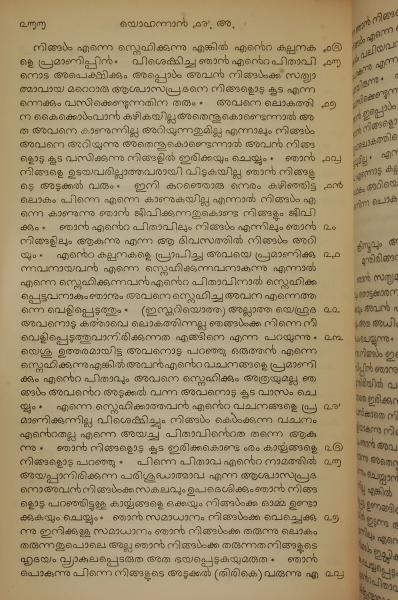 യൊഹന്നാൻ ൧൪. അ.
നിങ്ങൾ എന്നെ സ്നെഹിക്കുന്നു എങ്കിൽ എൻ്റെ കല്പനക
ളെ പ്രമാണിപ്പിൻ • വിശെഷിച്ച ഞാൻ എൻ്റെ പിതാവി
നൊട അപെക്ഷിക്കും അപ്പൊൾ അവൻ നിങ്ങൾക്ക സത്യാ
ത്മാവായ മറ്റൊരു ആശ്വാസപ്രദനെ നിങ്ങളൊടു കൂട എന്ന
ന്നെക്കും വസിക്കെണ്ടുന്നതിന തരും • അവനെ ലൊകത്തി
ന കൈക്കൊൾവാൻ കഴികയില്ല അതെന്തുകൊണ്ടെന്നാൽ അ
ത അവനെ കാണുന്നില്ല അറിയുന്നതുമില്ല എന്നാലും നിങ്ങൾ
അവനെ അറിയുന്നു അതെന്തുകൊണ്ടെന്നാൽ അവൻ നിങ്ങ
ളൊടു കൂട വസിക്കുന്നു നിങ്ങളിൽ ഇരിക്കയും ചെയ്യും • ഞാൻ ൧൮
നിങ്ങളെ ഉടയവരില്ലാത്തവരായി വിടുകയില്ല ഞാൻ നിങ്ങളു
ടെ അടുക്കൽ വരും • ഇനി കുറഞ്ഞൊരു നെരം കഴിഞ്ഞിട്ട ൧൯
ലൊകം പിന്നെ എന്നെ കാണുകയില്ല എന്നാൽ നിങ്ങൾ എ
ന്നെ കാണുന്നു ഞാൻ ജീവിക്കുന്നതുകൊണ്ട നിങ്ങളും ജീവി
ക്കും • ഞാൻ എൻ്റെ പിതാവിലും നിങ്ങൾ എന്നിലും ഞാൻ ൨൦
നിങ്ങളിലും ആകുന്നു എന്ന ആ ദിവസത്തിൽ നിങ്ങൾ അറി
യും • എൻ്റെ കല്പനകളെ പ്രാപിച്ച അവയെ പ്രമാണിക്കു ൨൧
ന്നവനായവൻ എന്നെ സ്നെഹിക്കുന്നവനാകുന്നു എന്നാൽ
എന്നെ സ്നെഹിക്കുന്നവൻ എൻ്റെ പിതാവിനാൽ സ്നെഹിക്ക
പ്പെട്ടവനാകും ഞാനും അവനെ സ്നെഹിച്ച അവന എന്നെത്ത
ന്നെ വെളിപ്പെടുത്തും • (ഇസ്കറിയൊത്ത) അല്ലാത്ത യെഹൂദ ൨൨
അവനൊടു കൎത്താവെ ലൊകത്തിന്നല്ല ഞങ്ങൾക്ക നിന്നെ നീ
വെളിപ്പെടുത്തുവാനിരിക്കുന്നത എങ്ങിനെ എന്ന പറയുന്നു • ൨൩
യെശു ഉത്തരമായിട്ട അവനൊടു പറഞ്ഞു ഒരുത്തൻ എന്നെ
സ്നെഹിക്കുന്നു എങ്കിൽ അവൻ എൻ്റെ വചനങ്ങളെ പ്രമാണി
ക്കും എൻ്റെ പിതാവും അവനെ സ്നെഹിക്കും അത്രയുമല്ല ഞ
ങ്ങൾ അവൻ്റെ അടുക്കൽ വന്ന അവനൊടു കൂട വാസം ചെ
യ്യും • എന്നെ സ്നെഹിക്കാത്തവൻ എൻ്റെ വചനങ്ങളെ പ്ര ൨൪
മാണിക്കുന്നില്ല വിശെഷിച്ചും നിങ്ങൾ കെൾക്കുന്ന വചനം
എൻ്റെതല്ല എന്നെ അയച്ച പിതാവിൻ്റെത തന്നെ ആകു
ന്നു • ഞാൻ നിങ്ങളൊടു കൂട ഇരിക്കകൊണ്ടു ൟ കാൎയ്യങ്ങളെ ൨൫
നിങ്ങളൊടു പറഞ്ഞു • പിന്നെ പിതാവ എൻ്റെ നാമത്തിൽ ൨൬
അയപ്പാനിരിക്കുന്ന പരിശുദ്ധാത്മാവ എന്ന ആശ്വാസപ്രദ
നൊ അവൻ നിങ്ങൾക്ക സകലവും ഉപദെശിക്കും ഞാൻ നിങ്ങ
ളൊടു പറഞ്ഞിട്ടുള്ള കാൎയ്യങ്ങളെ ഒക്കെയും നിങ്ങൾക്ക ഓൎമ്മ ഉണ്ടാ
ക്കുകയും ചെയ്യും • ഞാൻ സമാധാനം നിങ്ങൾക്ക വെച്ചെക്കു ൨൭
ന്നു ഇനിക്കുള്ള സമാധാനം ഞാൻ നിങ്ങൾക്ക തരുന്നു ലൊകം
തരുന്നതുപൊലെ അല്ല ഞാൻ നിങ്ങൾക്ക തരുന്നത നിങ്ങളുടെ
ഹൃദയം വ്യാകുലപ്പെടരുത അത ഭയപ്പെടുകയുമരുത • ഞാൻ
പൊകുന്നു പിന്നെ നിങ്ങളുടെ അടുക്കൽ (തിരികെ) വരുന്നു എ ൨൮